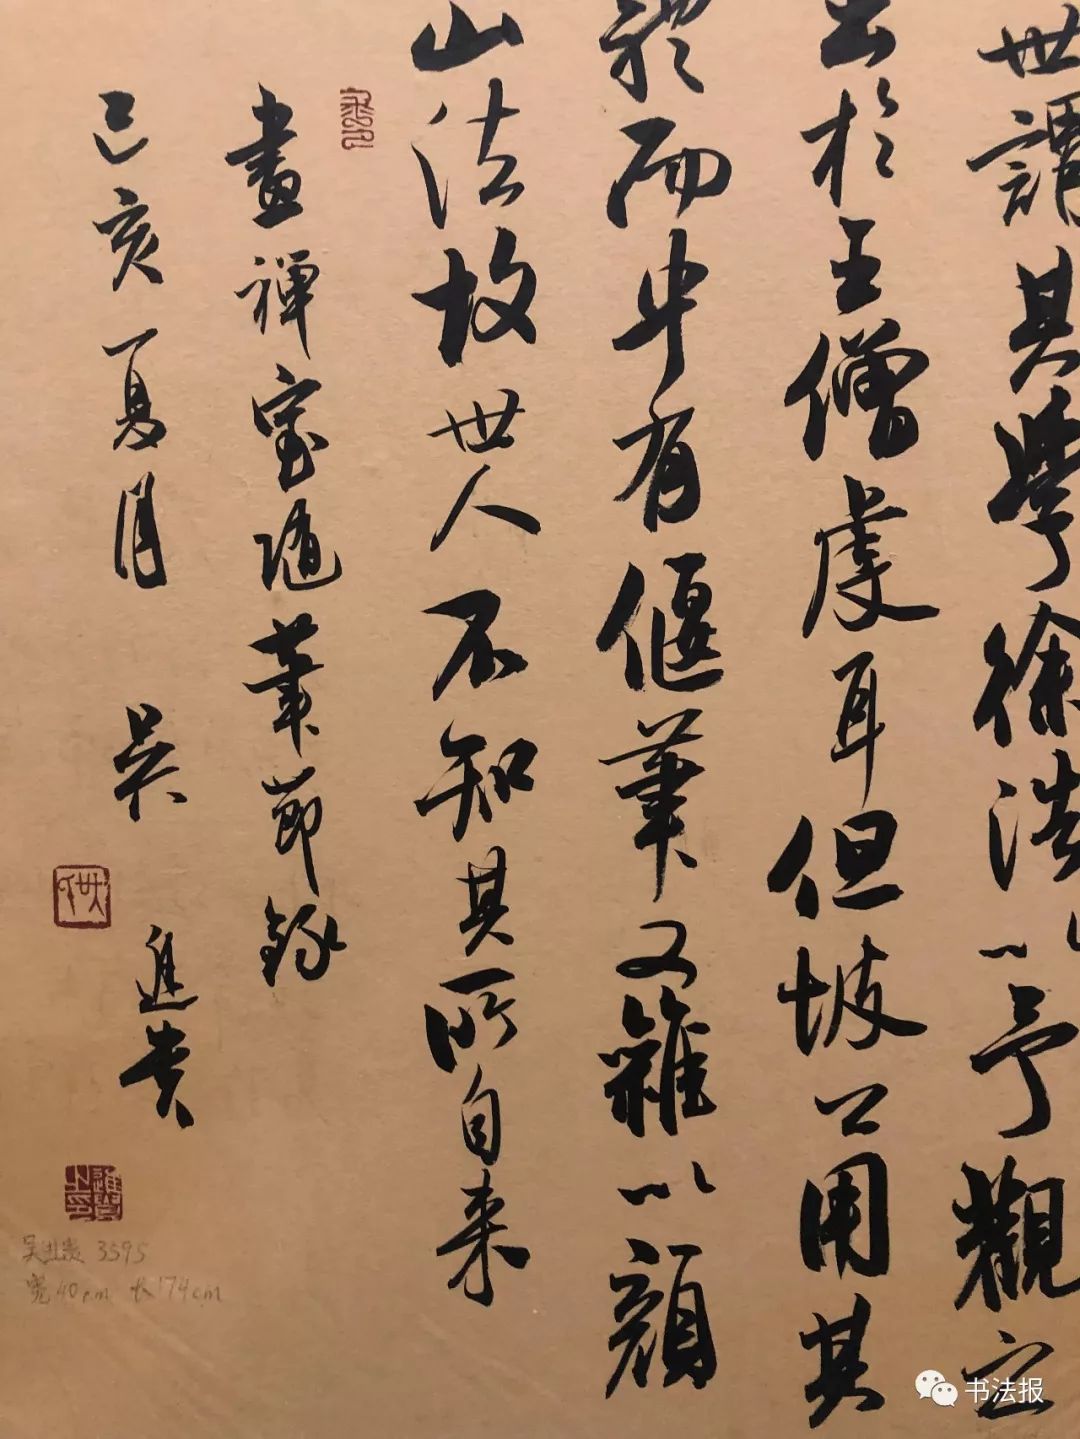 世謂其學徐浩以予觀之
出於王僧虔耳但坡公用其
體而中有偃筆又雜以顏
山法故世人不知其所自來
畫禪室隨筆節錄
己亥夏月 吳進貴
吴进贵 3595
宽40cm 长174cm
书法报